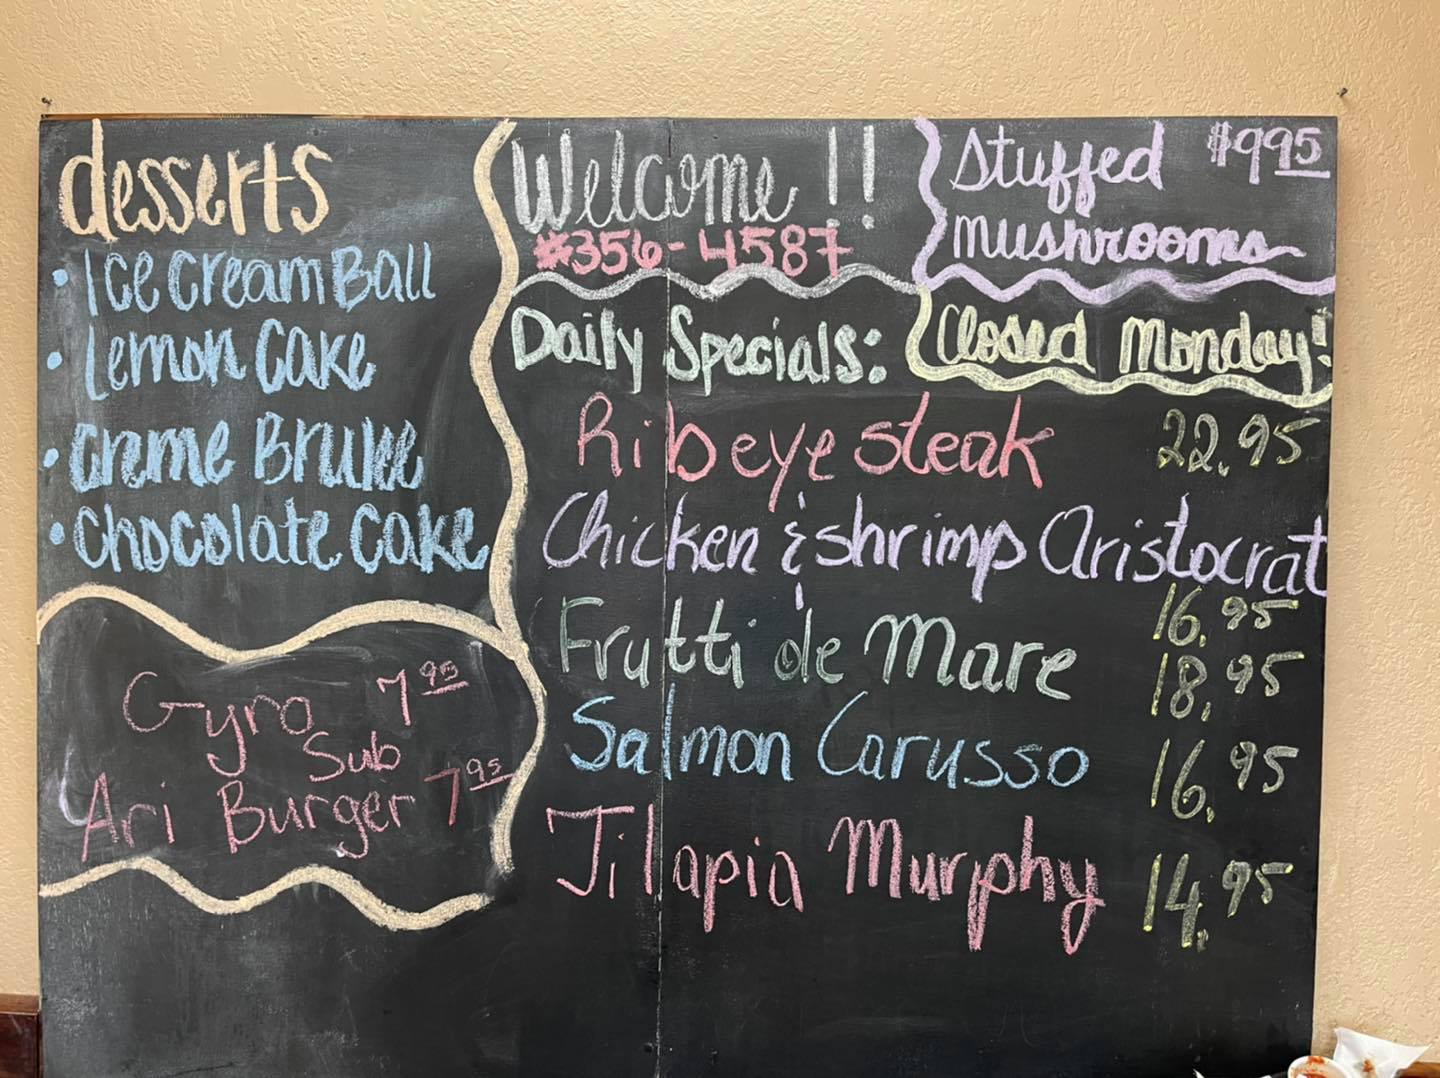 desserts
• Ice cream Ball
• Lemon Cake
• Creme Brulee
• Chocolate Cake
Gyro 7 95
Sub
Ari Burger 7 95
Welcome !!
#356-4587
Stuffed $9 95
mushrooms
Daily Specials:
Closed Monday!
Ribeye steak 22.95
Chicken & shrimp Aristocrat
16.95
Frutti de Mare 18.95
Salmon Carusso 16.95
Tilapia Murphy 14.95